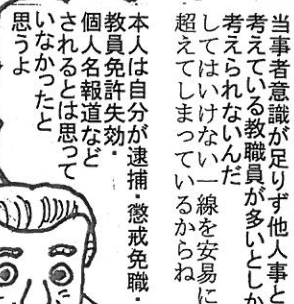 当事者意識が足りず他人事と
考えている教職員が多いとしか
考えられないんだ
してはいけない一線を安易に
超えてしまっているからね
本人は自分が逮捕・懲戒免職・
教員免許失効・
個人名報道など
されるとは思って
いなかったと
思うよ